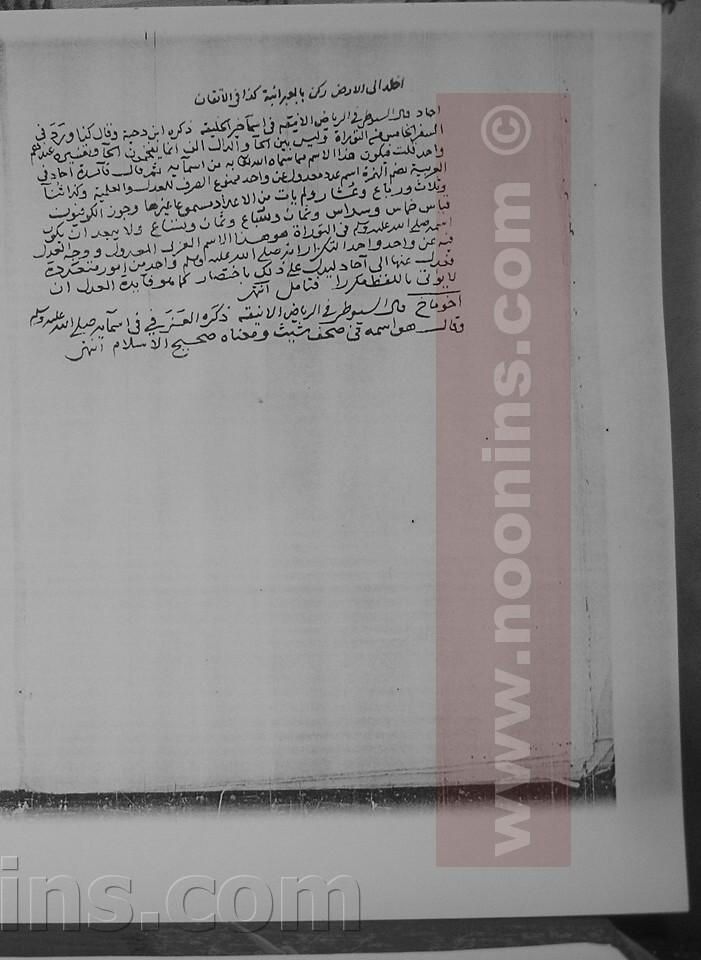 اخلد الى الارض ركن بالعبرانية كذا في الاتقان
احاد قال السيوطي في الرياض الانيقة في اسماء خير الخليقة ذكره ابن دحية وقال كذا ورد في
السفر الخامس من التوراة وليس بين الحا والدال الف انما يفخمون الحا وتفسيره عندهم
واحد قلت فيكون هذا الاسم مما سماه الله تعالى به من اسمايه ثم قال فايدة احاد في
العربية بضم الهمزة اسم عدد معدول عن واحد ممنوع الصرف للعدل والعلمية وكذا ثنا
وثلاث ورباع وعشار ولم يات من الاعداد مسموعا غيرها وجوز الكوفيون
قياس خماس وسداس وسباع وثمان وتساع ولا يبعد ان يكون
اسمه صلى الله عليه وسلم في التوراة هو هذا الاسم العربي المعدول ووجه العدل
فيه عن واحد واحد التكرار انه صلى الله عليه وسلم واحد من امور متعددة
فعدل عنها الى احاد ليدل على ذلك باختصار كما هو فايدة العدل ان
لا يوتى باللفظ مكررا فتامل انتهى
اخوماخ قال السيوطي في الرياض الانيقة ذكره العزفي في اسمايه صلى الله عليه وسلم
وقال هو اسمه في صحف شيث ومعناه صحيح الاسلام انتهى
www.noonins.com ©
ins.com